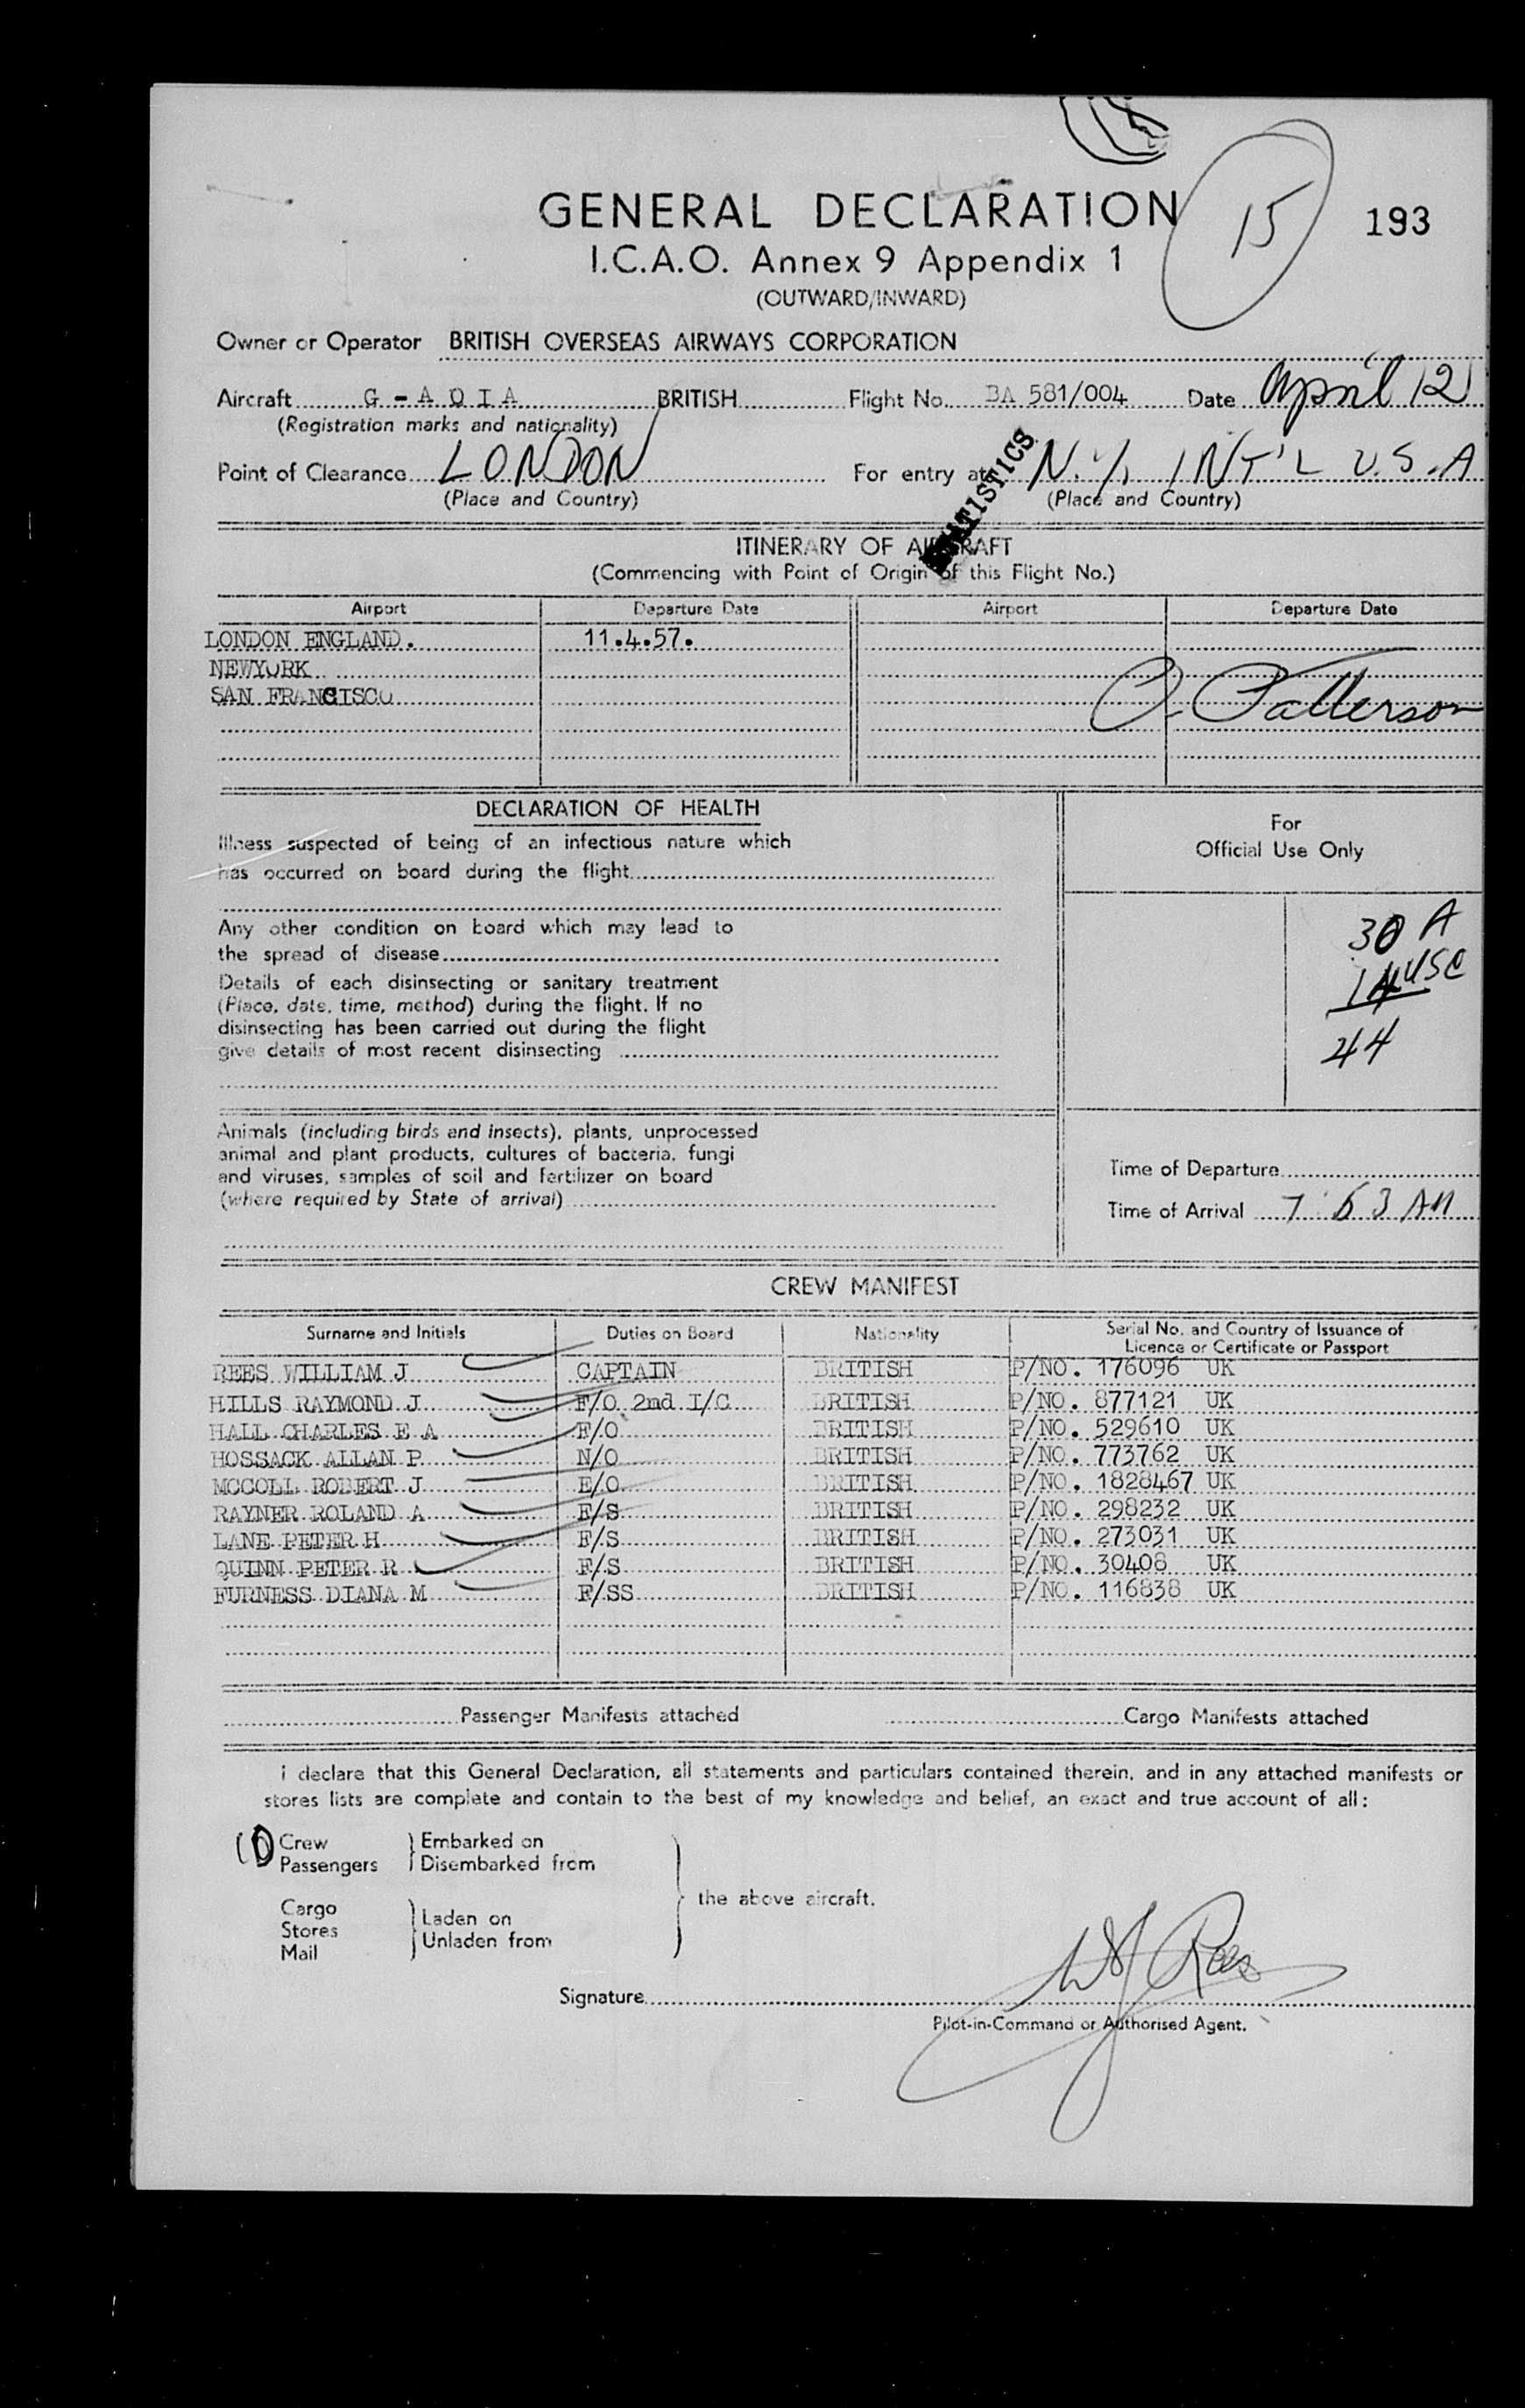 GENERAL DECLARATION
15
193
I.C.A.O. Annex 9 Appendix 1
(OUTWARD/INWARD)
Owner or Operator BRITISH OVERSEAS AIRWAYS CORPORATION
Aircraft G-AOIA BRITISH Flight No. BA 581/004 Date April 12
(Registration marks and nationality)
Point of Clearance LONDON For entry at N.Y. INT'L U.S.A
(Place and Country) (Place and Country)
ITINERARY OF AIRCRAFT
(Commencing with Point of Origin of this Flight No.)
Airport Departure Date Airport Departure Date
LONDON ENGLAND. 11.4.57.
NEWYORK
SAN FRANCISCO
Patterson
DECLARATION OF HEALTH
Illness suspected of being of an infectious nature which
has occurred on board during the flight
Any other condition on board which may lead to
the spread of disease
Details of each disinsecting or sanitary treatment
(Place, date, time, method) during the flight. If no
disinsecting has been carried out during the flight
give details of most recent disinsecting
For
Official Use Only
30 A
14 USC
44
Animals (including birds and insects), plants, unprocessed
animal and plant products, cultures of bacteria, fungi
and viruses, samples of soil and fertilizer on board
(where required by State of arrival)
Time of Departure
Time of Arrival 7 53 AM
CREW MANIFEST
Surname and Initials Duties on Board Nationality Serial No. and Country of Issuance of
Licence or Certificate or Passport
REES WILLIAM J CAPTAIN BRITISH P/NO. 176096 UK
HILLS RAYMOND J F/O 2nd I/C BRITISH P/NO. 877121 UK
HALL CHARLES E A F/O BRITISH P/NO. 529610 UK
HOSSACK ALLAN P N/O BRITISH P/NO. 773762 UK
MCCOLL ROBERT J E/O BRITISH P/NO. 1828467 UK
RAYNER ROLAND A F/S BRITISH P/NO. 298232 UK
LANE PETER H F/S BRITISH P/NO. 273031 UK
QUINN PETER R F/S BRITISH P/NO. 30408 UK
FURNESS DIANA M F/SS BRITISH P/NO. 116838 UK
Passenger Manifests attached Cargo Manifests attached
I declare that this General Declaration, all statements and particulars contained therein, and in any attached manifests or
stores lists are complete and contain to the best of my knowledge and belief, an exact and true account of all:
Crew Embarked on
Passengers Disembarked from
the above aircraft.
Cargo
Stores Laden on
Mail Unladen from
WJ Rees
Signature
Pilot-in-Command or Authorised Agent.